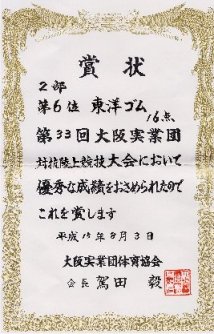 賞状
2部
第6位 東洋ゴム
16点
第33回大阪実業団
対抗陸上競技大会において
優秀な成績をおさめられたので
これを賞します
平成15年8月3日
大阪実業団体育協会
会長 駕田 毅